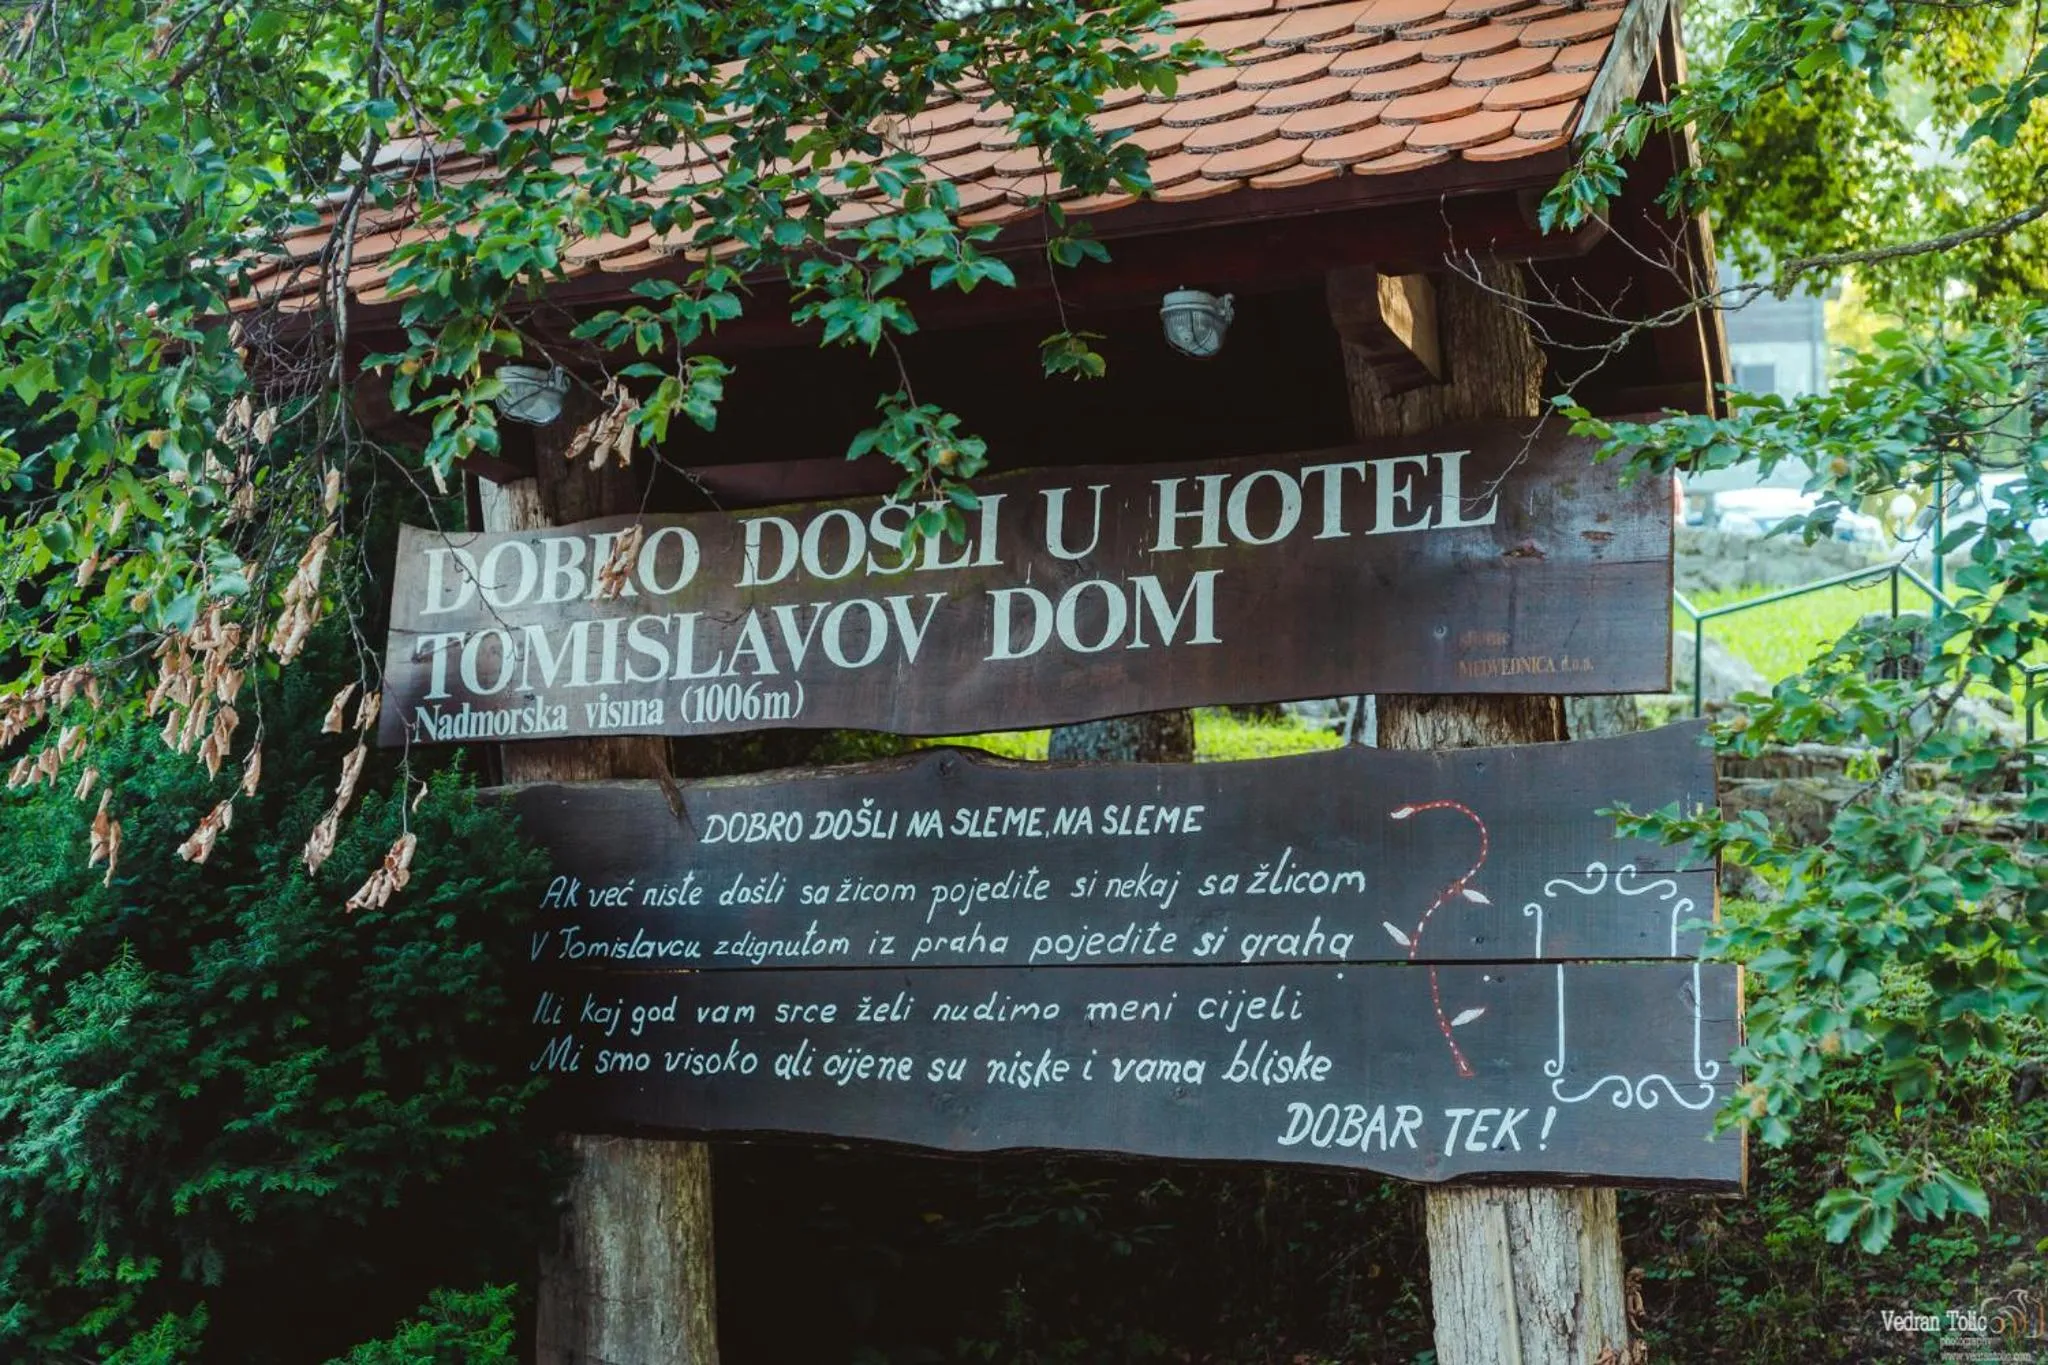 DOBRO DOŠLI U HOTEL
TOMISLAVOV DOM
Nadmorska visina (1006m)
sljeme
MEDVEDNICA d.o.o.
DOBRO DOŠLI NA SLEME, NA SLEME
Ak već niste došli sa žicom pojedite si nekaj sa žlicom
V Tomislavcu zdignutom iz praha pojedite si graha
Ili kaj god vam srce želi nudimo meni cijeli
Mi smo visoko ali cijene su niske i vama bliske
DOBAR TEK!
Vedran Tolic
photography
www.vedrantolic.com